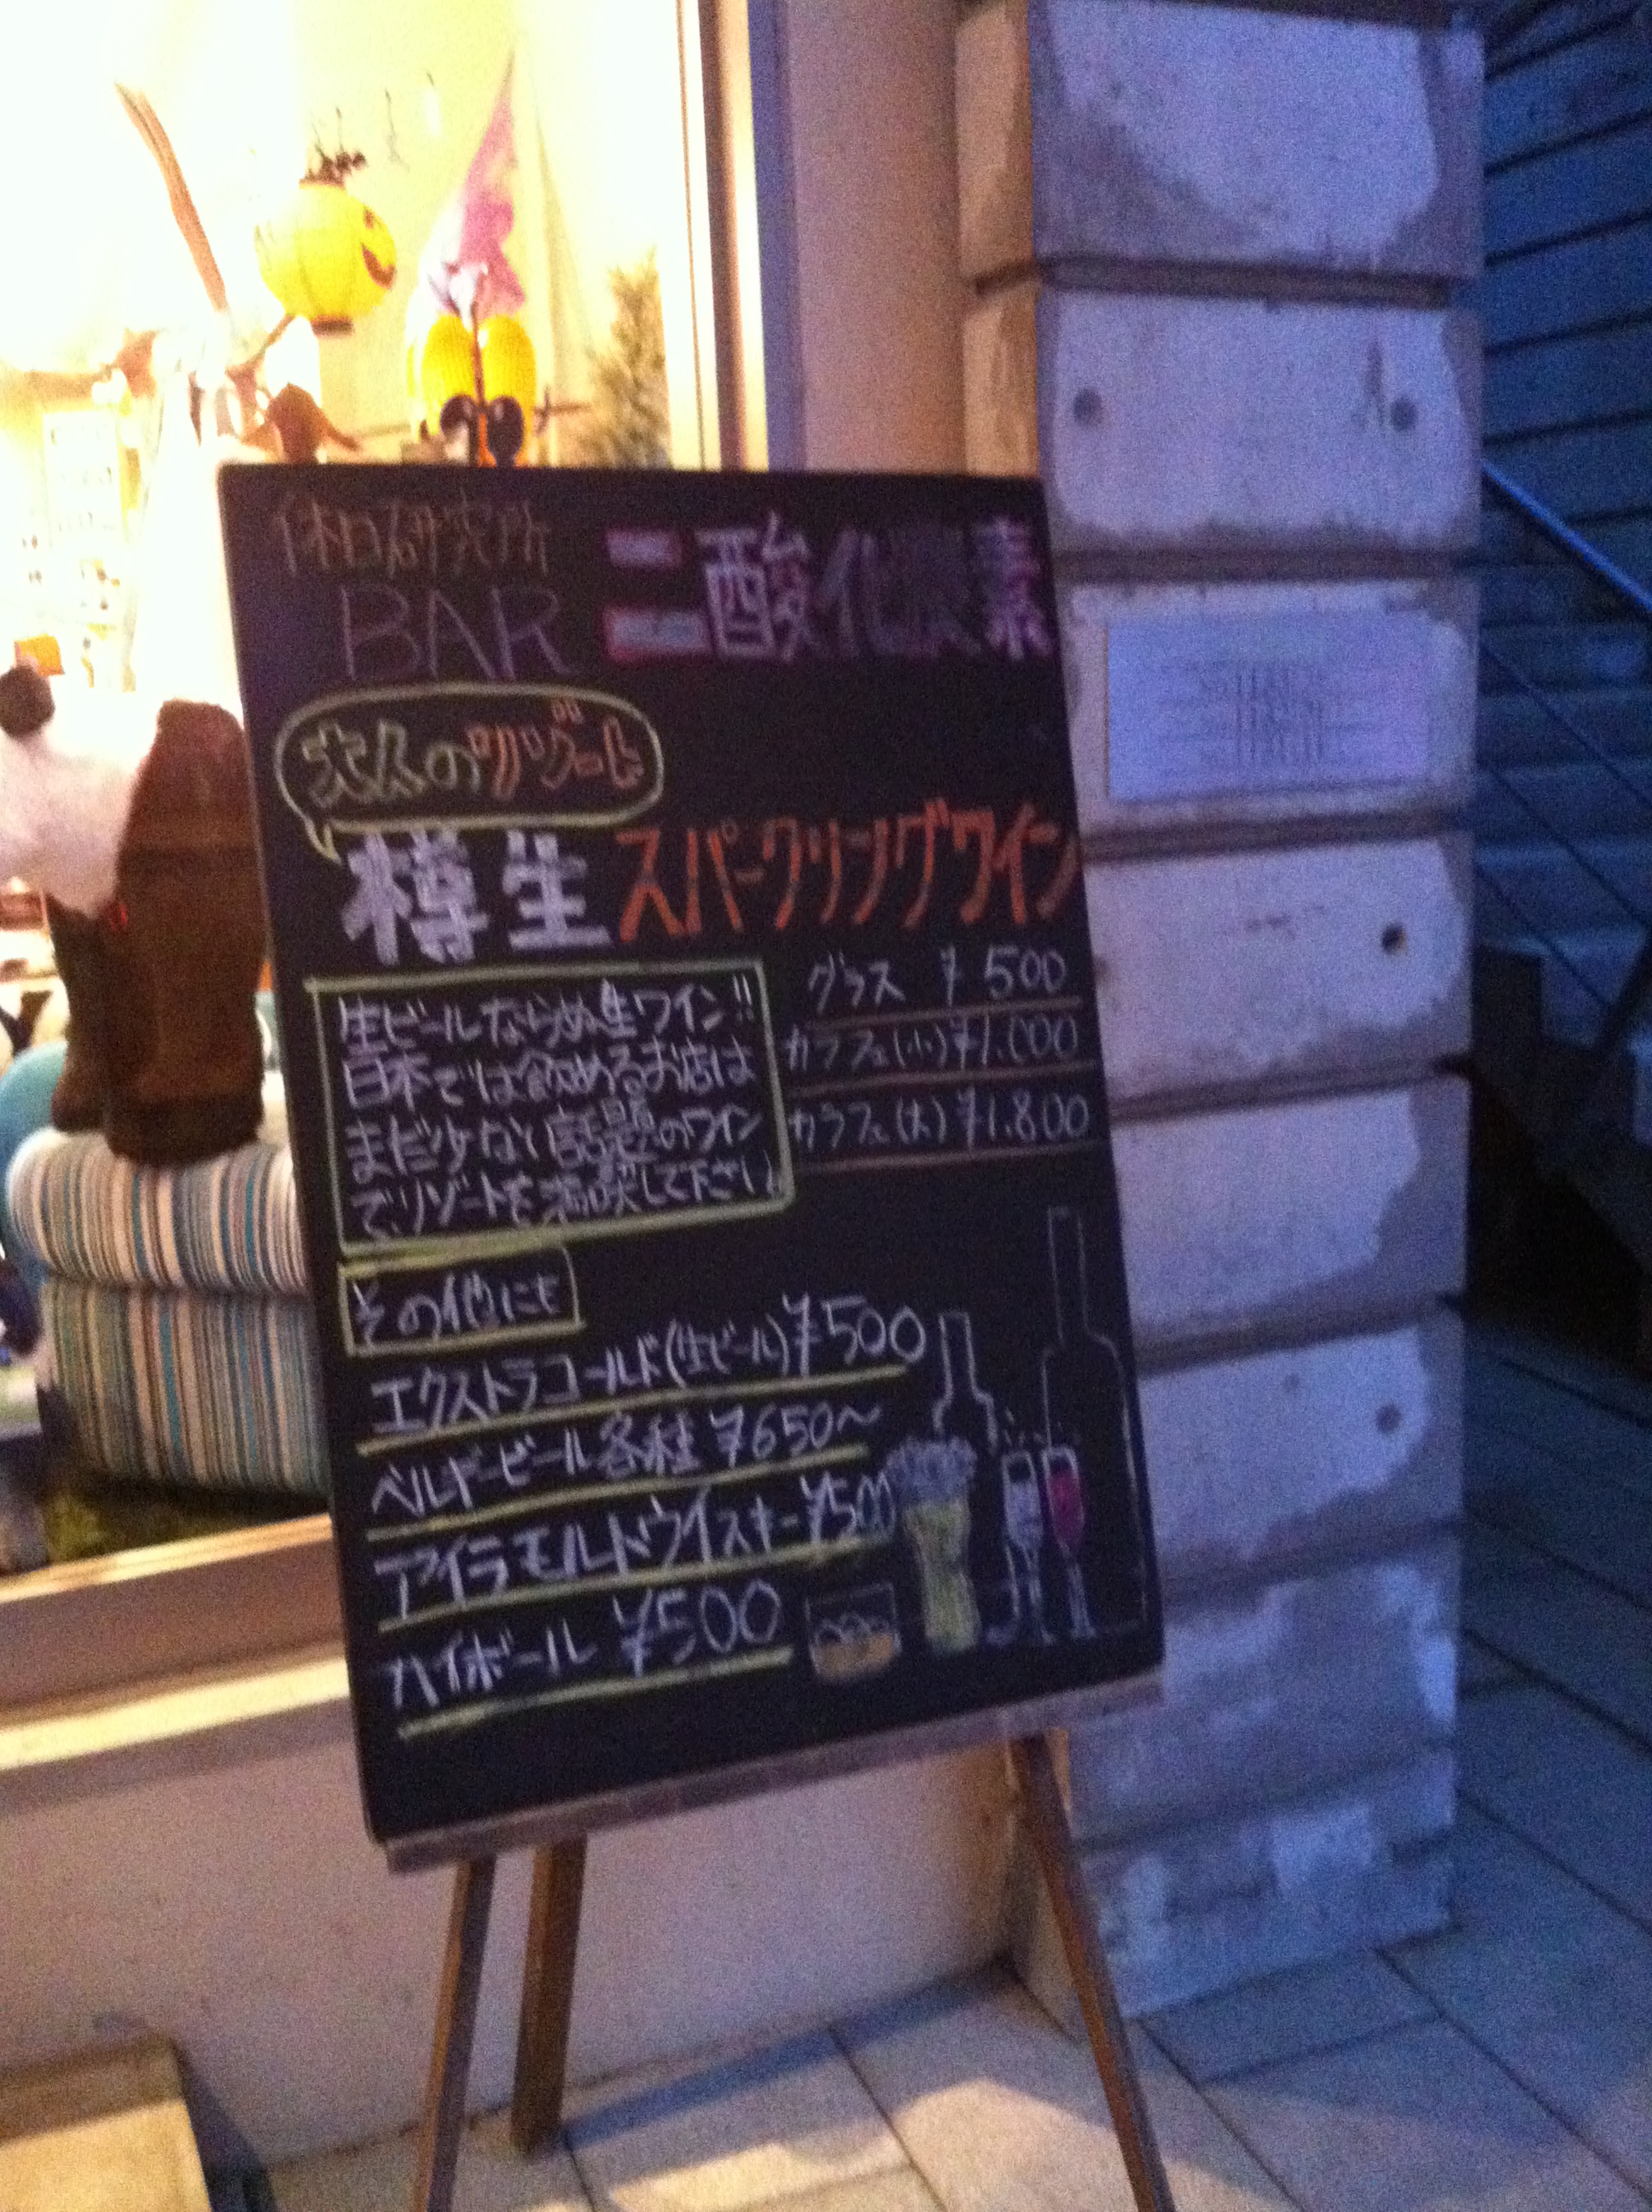 休日研究所
BAR 二酸化炭素
大人のリゾート
樽生スパークリングワイン
生ビールならぬ生ワイン!!
日本では飲めるお店は
まだ少ない話題のワイン
でリゾートを満喫して下さい。
グラス ¥500
カラフェ(小)¥1,000
カラフェ(大)¥1,800
その他にも
エクストラコールド(生ビール)¥500
ベルギービール各種 ¥650〜
アイラモルトウイスキー¥500
ハイボール ¥500